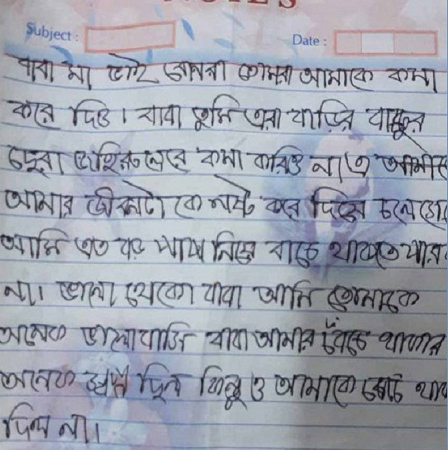 NOTES
Subject :
Date :
বাবা মা ভাই তোমরা আমাকে ক্ষমা
করে দিও । বাবা তুমি এরা বাড়ির
ক্ষমা করিও না এ আমাকে
আমার জীবনটা কে নষ্ট করে দিয়ে চলে
আমি এত বড় পাপ নিয়ে বাচে থাকতে পার
না। ভালো থেকো বাবা আমি তোমাকে
অনেক ভালোবাসি বাবা আমার বেঁচে থাকার
অনেক ইচ্ছা ছিল কিন্তু ও আমাকে বেচে থাক
দিল না।